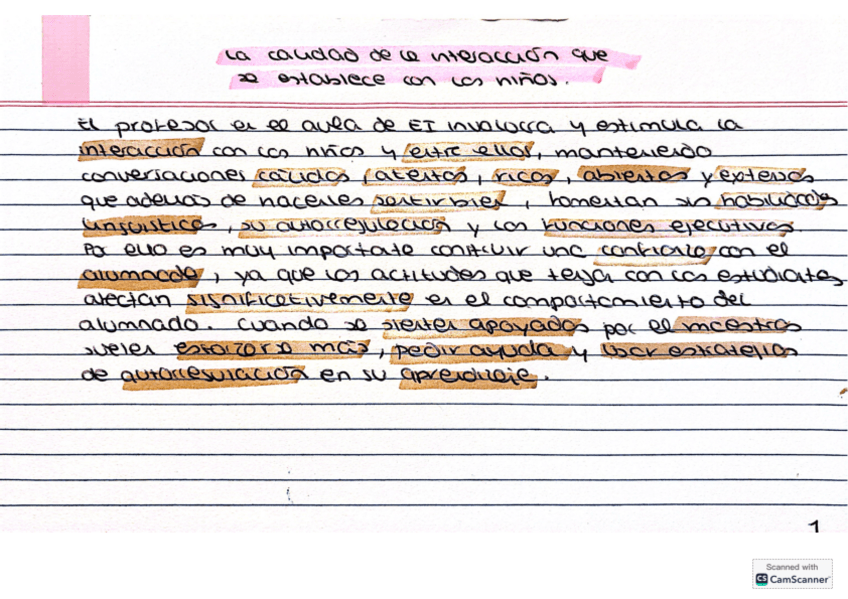 La calidad de la interacción que
se establece con los niños.
El profesor en el aula de EI involucra y estimula la
interacción con los niños y entre ellos, manteniendo
conversaciones cálidas, atentas, ricas, abiertas y extensas
que además de hacerles sentir bien, fomentan sus habilidades
lingüísticas, su autorregulación y las funciones ejecutivas.
Por ello es muy importante construir una confianza con el
alumnado, ya que las actitudes que tenga con los estudiantes
afectan significativamente en el comportamiento del
alumnado. Cuando se sienten apoyados por el maestro
suelen esforzarse más, pedir ayuda y usar estrategias
de autorregulación en su aprendizaje.
1
Scanned with
CS CamScanner